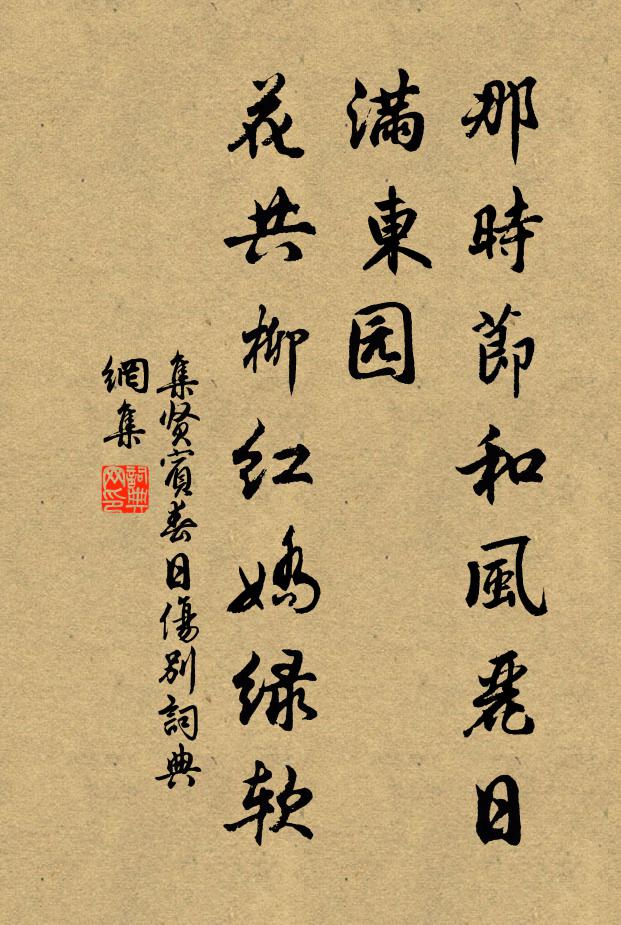 那時節和風麗日
滿東园
花共柳红嬌緑软
集贤賓春日傷别詞典
網集
詞典
网印